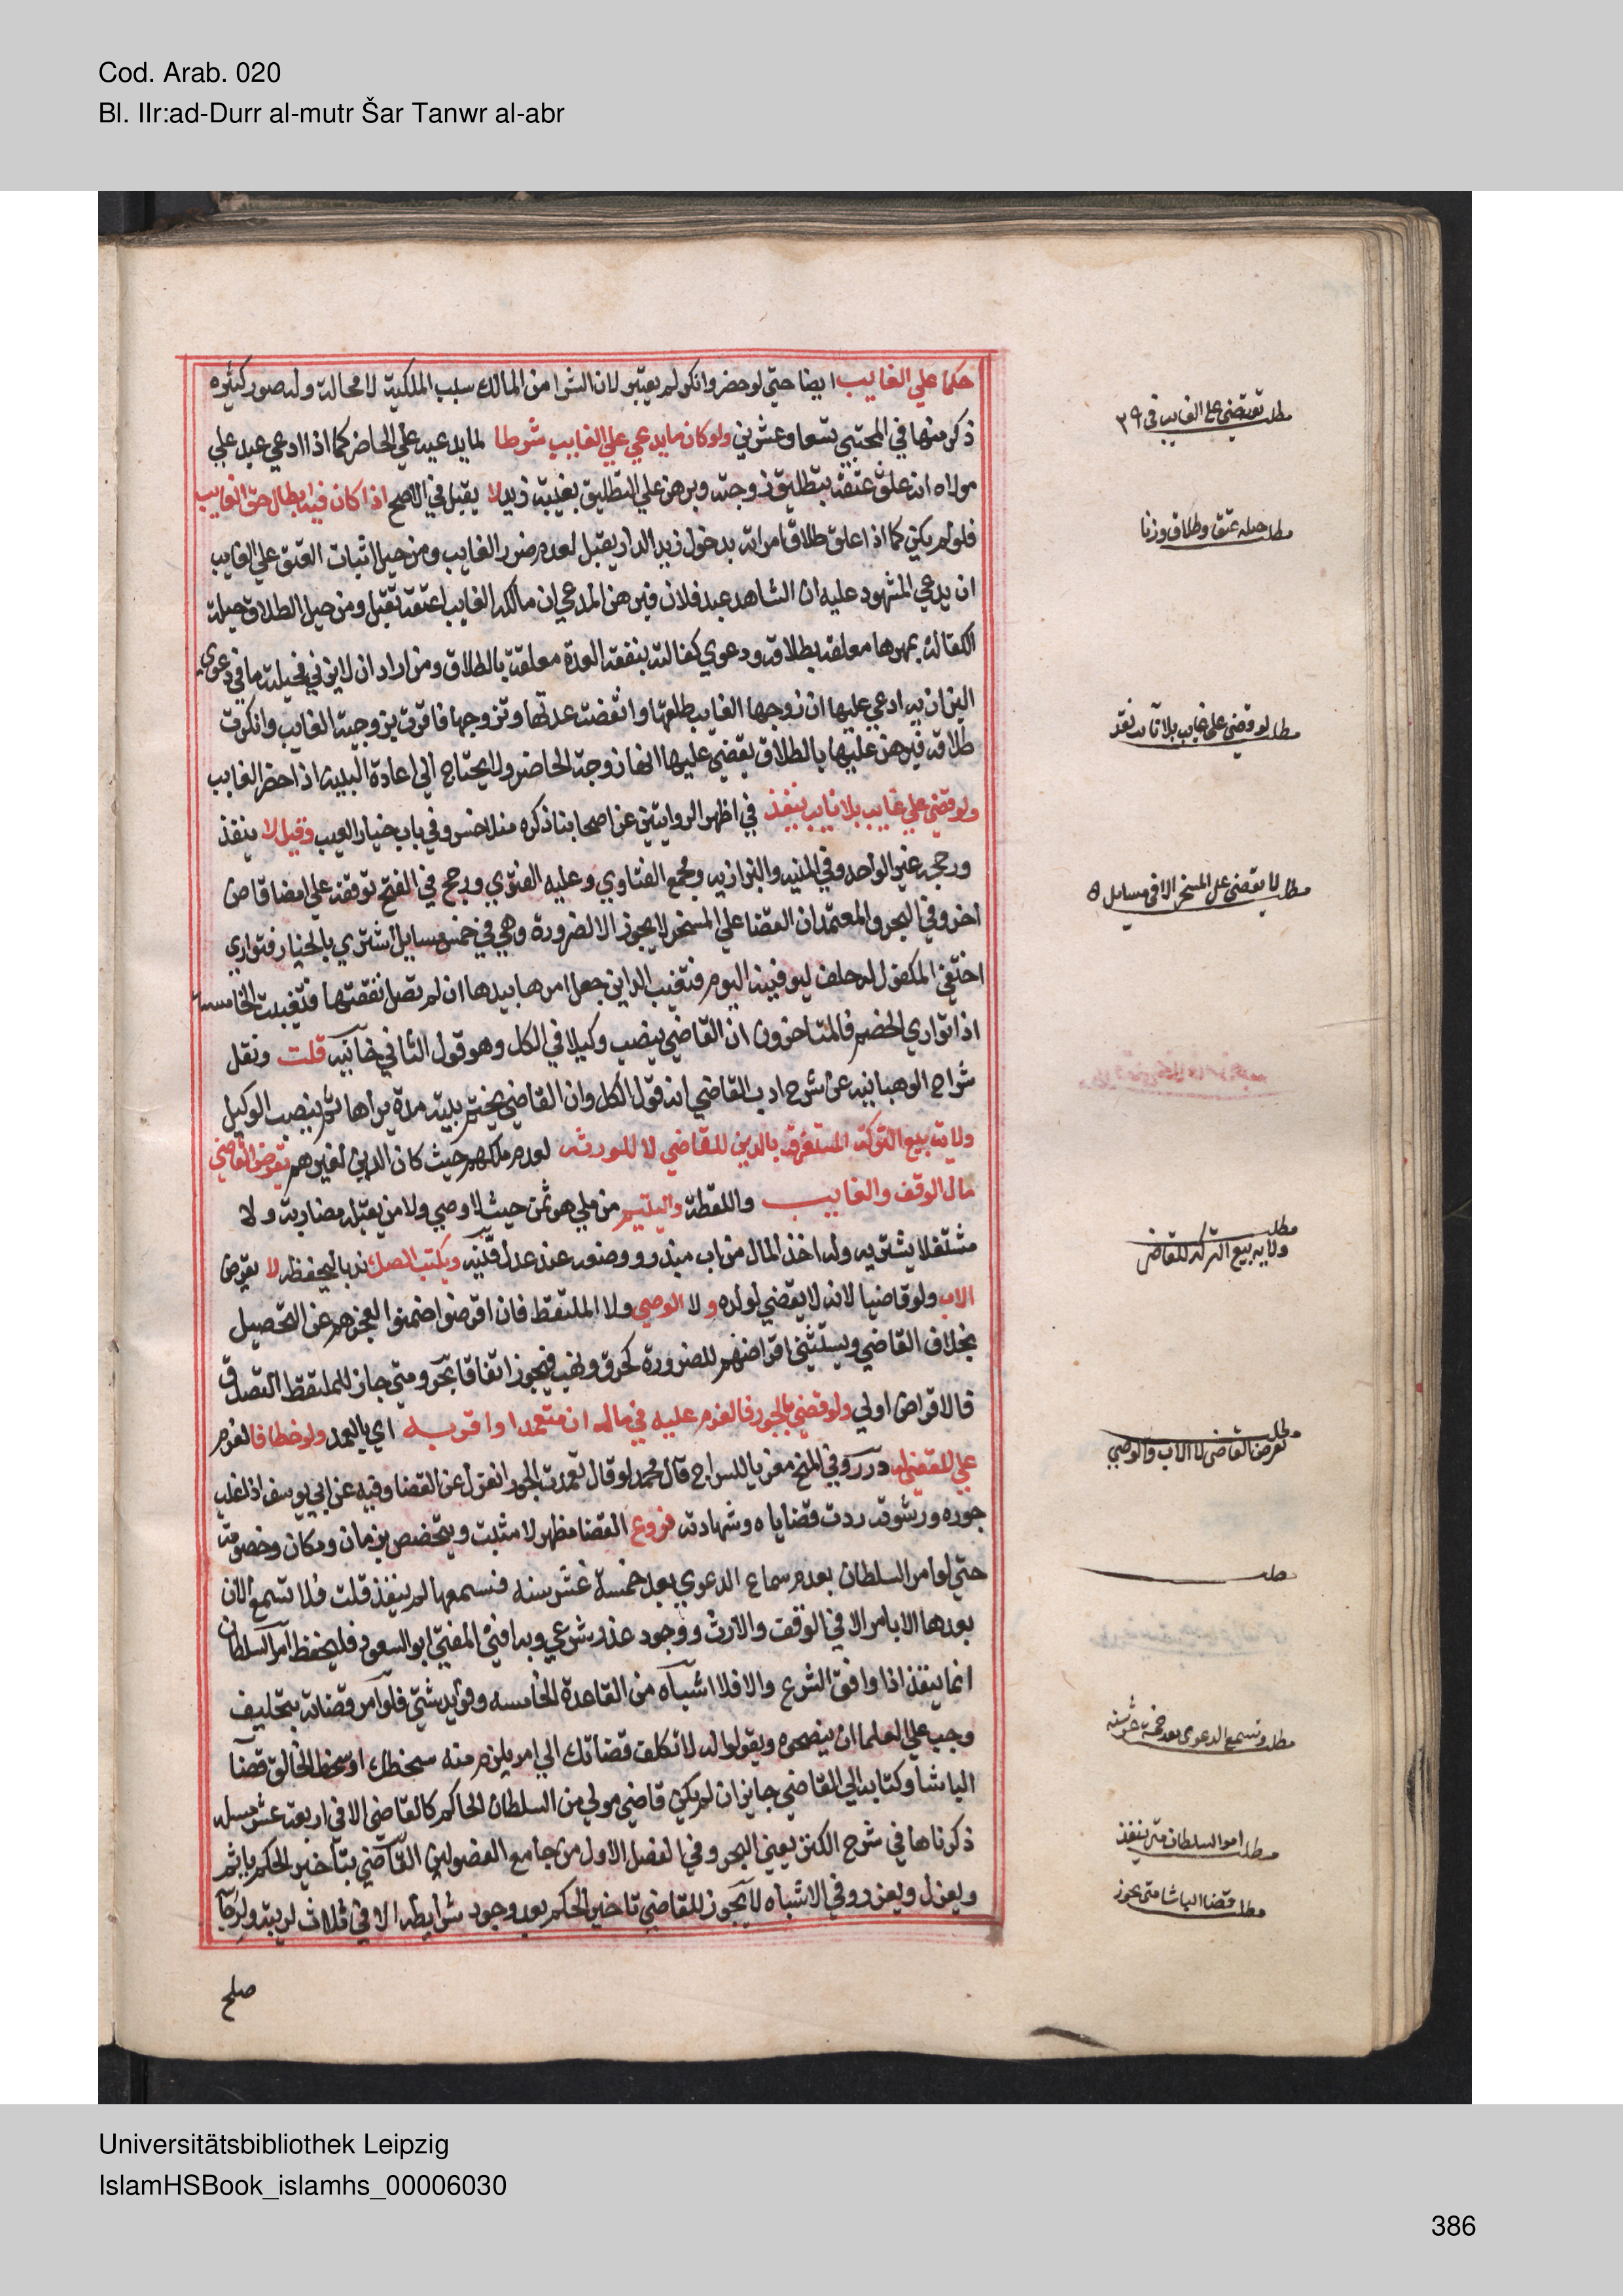 Cod. Arab. 020
Bl. IIr:ad-Durr al-mutr Šar Tanwr al-abr
حكما علي الغايب ايضا حتي لو حضر وانكر لم يعتبر لان الشرا من المالك سبب الملكية لا محالة وله صور كثيره
ذكر منها في المجتبي تسعا وعشرين ولو كان ما يدعي علي الغايب شرطا لما يدعيه علي الحاضر كما اذا ادعي عبد علي
مولاه انه علق عتقه بتطليق زوجته وبرهن علي التطليق بغيبة زيد لا يقبل في الاصح اذا كان فيه ابطال حق الغايب
فلو لم يكن كما اذا علق طلاق امراته بدخول زيد الدار يقبل لعدم ضرر الغايب ومن حيل اثبات العتق علي الغايب
ان يدعي المشهود عليه ان الشاهد عبد فلان فبرهن المدعي ان مالكه الغايب اعتقه تقبل ومن حيل الطلاق حيلة
الكفالة بمهرها معلقة بطلاقه ودعوي كفالته بنفقة العدة معلقة بالطلاق ومن اراد ان لا يزني فحيلته ما في دعوي
البزازيه ادعي عليها ان زوجها الغايب طلقها وانقضت عدتها وتزوجها فاقرت بزوجية الغايب وانكرت
طلاقه فبرهن عليها بالطلاق يقضي عليها انها زوجة الحاضر ولا يحتاج الي اعادة البينة اذا حضر الغايب
ولو قضي علي غايب بلا نايب ينفذ في اظهر الروايتين عن اصحابنا ذكره منلا خسرو في باب خيار العيب وقيل لا ينفذ
ورجحه غير الواحد وفي المنيه والبزازيه ومجمع الفتاوي وعليه الفتوي ورجح في الفتح توقفه علي امضا قاض
اخر وفي البحر والمعتمد ان القضا علي المسخر لا يجوز الا لضرورة وهي في خمس مسايل اشتري بالخيار فتواري
اختفي المكفول له حلف ليوفينه اليوم فتغيب الداين جعل امرها بيدها ان لم تصل نفقتها فتغيبت الخامسة
اذا تواري الخصم فالمتاخرون ان القاضي ينصب وكيلا في الكل وهو قول الثاني خانيه قلت ونقل
شراح الوهبانيه عن شرح ادب القاضي انه قول الكل وان القاضي يختم بيته مدة يراها ثم ينصب الوكيل
ولاية بيع التركة المستغرقه بالدين للقاضي لا للورثه لعدم ملكهم حيث كان الدين لغيرهم يقرض القاضي
مال الوقف والغايب واللقطة واليتيم من ملي موتمن حيث لا وصي ولا من يقبله مضاربة ولا
مستغلا يشتريه وله اخذ المال من اب مبذر ووضعه عند عدل قنيه ويكتب الصك ندبا ليحفظه لا يقرض
الاب ولو قاضيا لانه لا يقضي لولده ولا الوصي ولا الملتقط فان اقرضوا ضمنوا لعجزهم عن التحصيل
بخلاف القاضي ويستثني اقراضهم للضرورة كحرق ونهب فيجوز اتفاقا بحر ومتي جاز للملتقط التصدق
فالاقراض اولي ولو قضي بالجور فالغرم عليه في ماله ان متعمدا واقر به اي بالعمد ولو خطا فالغرم
علي المقضي له درر وفي المنح معزيا للسراج قال محمد لو قال تعمدت الجور انعزل عن القضا وفيه عن ابي يوسف اذا غلب
جوره ورشوته ردت قضاياه وشهادته فروع القضا مظهر لا مثبت ويتخصص بزمان ومكان وخصومة
حتي لو امر السلطان بعدم سماع الدعوي بعد خمسة عشر سنه فسمعها لم ينفذ قلت فلا تسمع الان
بعدها الا بامر الا في الوقف والارث ووجود عذر شرعي وبه افتي المفتي ابو السعود فليحفظ امر السلطان
انما ينفذ اذا وافق الشرع والا فلا اشباه من القاعدة الخامسه وفوايد شتي فلو امر قضاته بتحليف
وجب علي العلما ان ينصحوه ويقولوا له لا تكلف قضاتك الي امر يلزم منه سخطك او سخط الخالق قضا
الباشا وكتابه الي القاضي جايز ان لم يكن قاضي مولي من السلطان الحاكم كالقاضي الا في اربعة عشر مسله
ذكرناها في شرح الكنز يعني البحر وفي الفصل الاول من جامع الفصولين القاضي بتاخير الحكم ياثم
ويعزل ويعزر وفي الاشباه لا يجوز للقاضي تاخير الحكم بعد وجود شرايطه الا في ثلاث لريبة ولرجا
صلح
مطلب يقضي علي الغايب في ٢٩
مطلب حيله عتق وطلاق وزنا
مطلب لو قضي علي غايب بلا نايب نفذ
مطلب لا يقضي علي المسخر الا في مسايل ٥
مطلب
ولايه بيع التركه للقاضي
مطلب
يقرض القاضي لا الاب والوصي
مطلب
مطلب وتسمع الدعوي بعد خمسة عشر سنه
مطلب امر السلطان متي ينفذ
مطلب قضا الباشا متي يجوز
Universitätsbibliothek Leipzig
IslamHSBook_islamhs_00006030
386